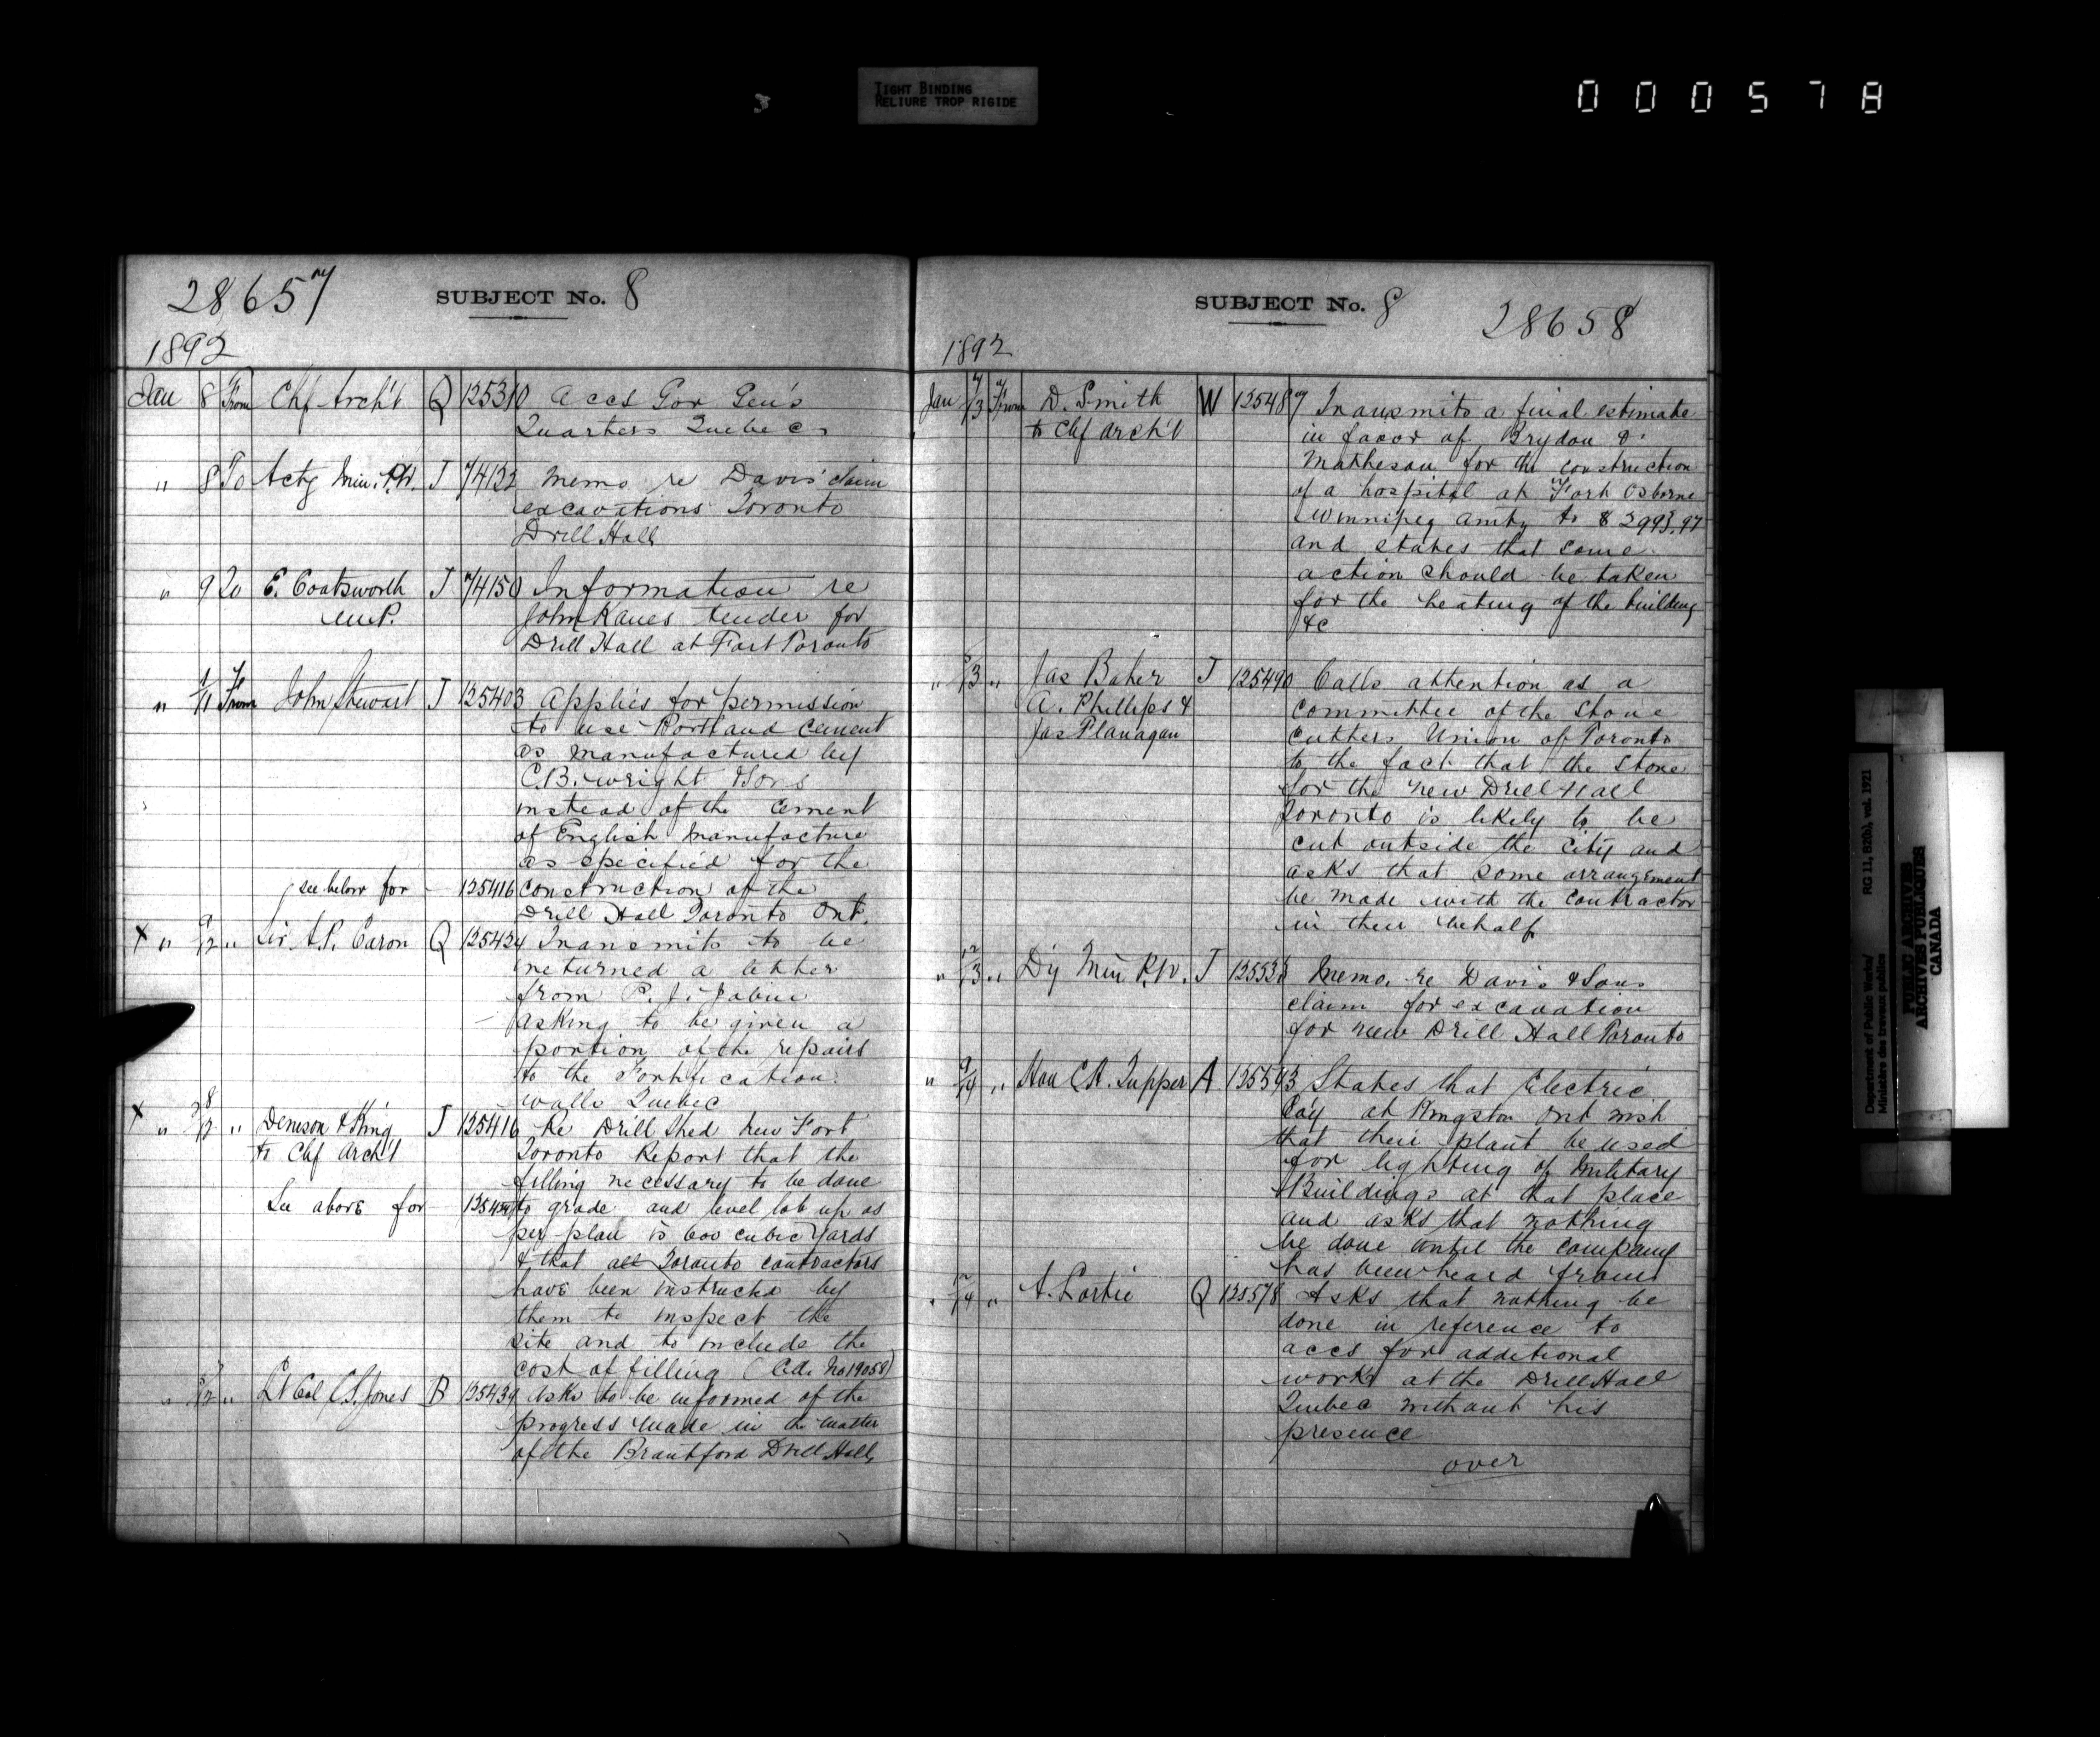 TIGHT BINDING
RELIURE TROP RIGIDE
000578
28657
SUBJECT No. 8
1892
Jan 8 From Chf Archt Q 125310 Accs Gov Gen's
Quarters Quebec
" 8 To Actg Min. P.W. T 74132 Memo re Davis' claim
excavations Toronto
Drill Hall
" 9 To E. Coatsworth T 74150 Information re
M.P. John Kanes tender for
Drill Hall at Fort Toronto
" 11 From John Stewart T 125403 Applies for permission
to use Portland Cement
as manufactured by
C.B. Wright & Sons
instead of the cement
of English manufacture
as specified for the
see below for - 125416 construction of the
Drill Hall Toronto Ont.
X " 9/12 " Sir A.P. Caron Q 125424 Transmits to be
returned a letter
from P. J. Jobin
asking to be given a
portion of the repairs
to the Fortification
walls Quebec
X " 8/12 " Denison & King T 125416 Re Drill Shed New Fort
to Chf Archt Toronto Report that the
filling necessary to be done
See above for to grade and level lot up as
per plan is 600 cubic yards
& that all Toronto contractors
have been instructed by
them to inspect the
site and to include the
cost of filling (Ed. No 19058)
" 12 " Lt Col C.S. Jones B 125439 Asks to be informed of the
progress made in the matter
of the Brantford Drill Hall
SUBJECT No. 8
28658
1892
Jan 13 From D. Smith W 125487 Transmits a final estimate
to Chf Archt in favor of Brydon &
Matheson for the construction
of a hospital at Fort Osborne
Winnipeg amtg to $2993.97
and states that some
action should be taken
for the heating of the building
&c
" 13 " Jas Baker T 125490 Calls attention as a
A. Phillips & committee of the Stone
Jas Flanagan Cutters Union of Toronto
to the fact that the stone
for the new Drill Hall
Toronto is likely to be
cut outside the city and
asks that some arrangement
be made with the contractor
in their behalf
" 13 " Dy Min P.W. T Memo. re Davis & Sons
claim for excavation
for new Drill Hall Toronto
" 9/14 " Hon C.H. Tupper A 125543 States that Electric
Coy at Kingston Ont wish
that their plant be used
for lighting of Military
Buildings at that place
and asks that nothing
be done until the company
has been heard from
" 14 " A. Lortie Q 125578 Asks that nothing be
done in reference to
accs for additional
works at the Drill Hall
Quebec without his
presence
over
Department of Public Works/ RG 11, B2(b), vol. 1921
Ministère des travaux publics
PUBLIC ARCHIVES
ARCHIVES PUBLIQUES
CANADA